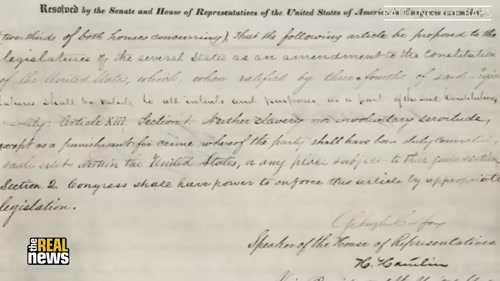 RATTLING THE BARS
Resolved by the Senate and House of Representatives of the United States of America
two thirds of both Houses concurring), That the following article be proposed to the
legislatures of the several States as an amendment to the Constitution
of the United States, which, when ratified by three-fourths of said
latures shall be valid, to all intents and purposes, as a part of the said Constitution,
namely: Article XIII. Section 1. Neither slavery nor involuntary servitude,
except as a punishment for crime whereof the party shall have been duly convicted,
shall exist within the United States, or any place subject to their jurisdiction.
Section 2. Congress shall have power to enforce this article by appropriate
legislation.
Schuyler Colfax
Speaker of the House of Representatives
H. Hamlin
the REAL
news